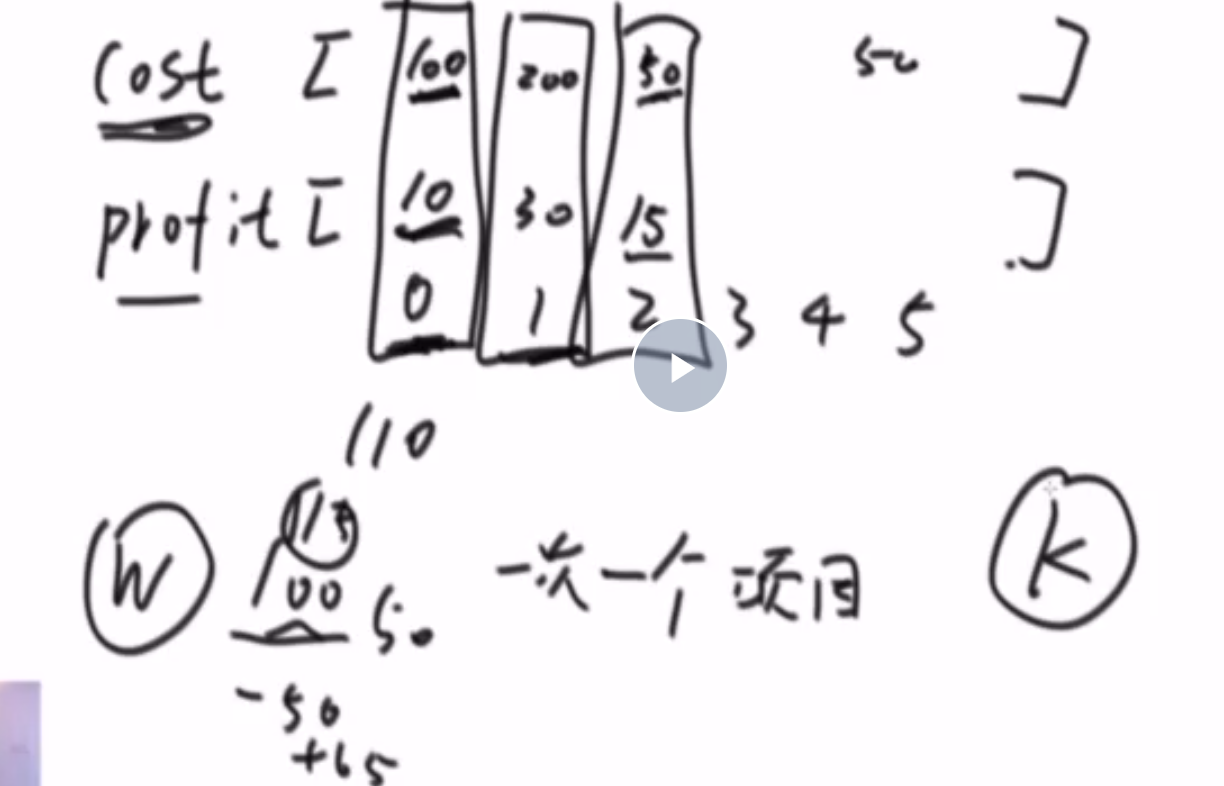 cost [ 100 200 50 50 ]
profit [ 10 30 15 ]
0 1 2 3 4 5
110
115
W 100 50 一次一个项目 K
-50
+65